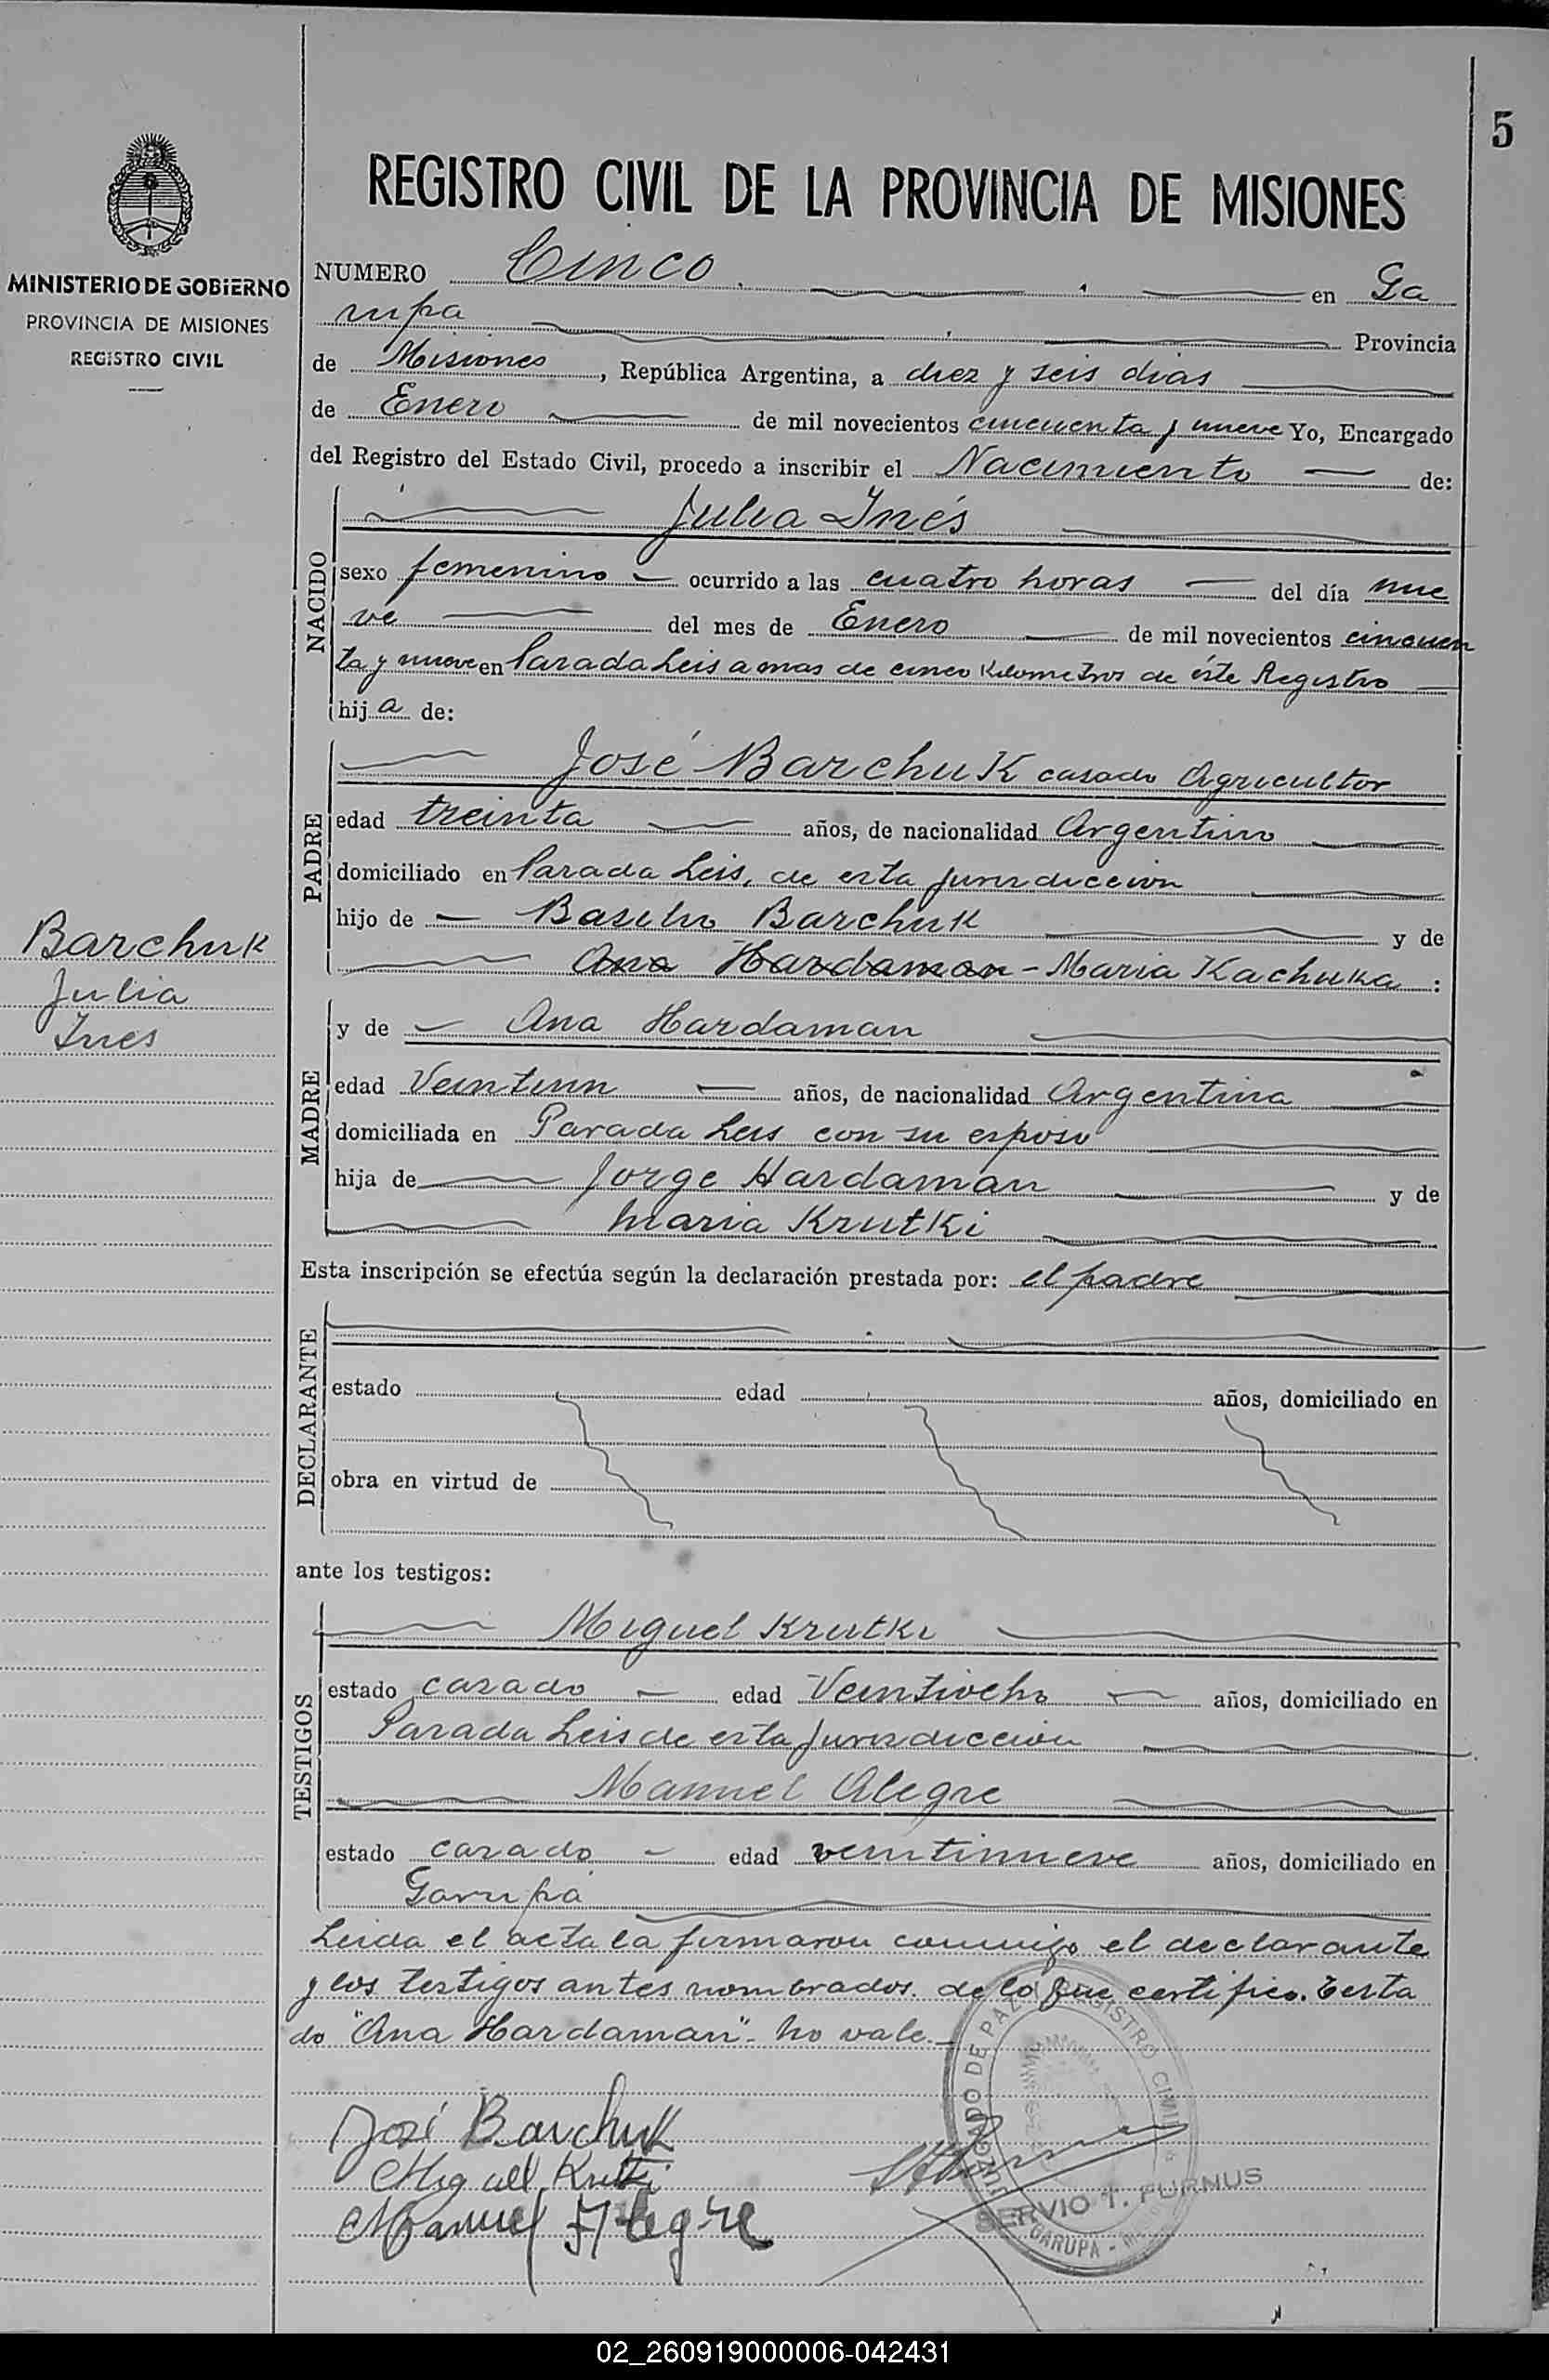 5
REGISTRO CIVIL DE LA PROVINCIA DE MISIONES
MINISTERIO DE GOBIERNO
PROVINCIA DE MISIONES
REGISTRO CIVIL
NUMERO Cinco en Ga
rupa Provincia
de Misiones, República Argentina, a diez y seis dias
de Enero de mil novecientos cincuenta y nueve Yo, Encargado
del Registro del Estado Civil, procedo a inscribir el Nacimiento de:
NACIDO
Julia Inés
sexo femenino ocurrido a las cuatro horas del día nue
ve del mes de Enero de mil novecientos cincuen
ta y nueve en Parada Leis a mas de cinco Kilometros de éste Registro
hija de:
PADRE
José Barchuk casado Agricultor
edad treinta años, de nacionalidad Argentino
domiciliado en Parada Leis, de esta Jurisdiccion
hijo de Basilio Barchuk y de
Ana Hardaman - Maria Kachuka :
Barchuk
Julia
Ines
MADRE
y de Ana Hardaman
edad Veintiun años, de nacionalidad Argentina
domiciliada en Parada Leis con su esposo
hija de Jorge Hardaman y de
Maria Krutki
Esta inscripción se efectúa según la declaración prestada por: el padre
DECLARANTE
estado edad años, domiciliado en
obra en virtud de
ante los testigos:
TESTIGOS
Miguel Krutki
estado casado edad Veintiocho años, domiciliado en
Parada Leis de esta Jurisdiccion
Manuel Alegre
estado casado edad veintinueve años, domiciliado en
Garupá
Leida el acta la firmaron conmigo el declarante
y los testigos antes nombrados. de lo que certifico. Testa
do "Ana Hardaman" - No vale.
José Barchuk
Miguel Krutki
Manuel Alegre
JUZGADO DE PAZ Y REGISTRO CIVIL
SERVIO T. FURNUS
GARUPA
02_260919000006-042431